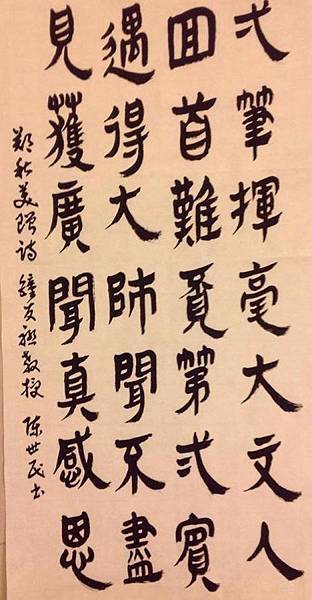 弌筆揮毫大文人
囬首難覓第弍賓
遇得大师聞不盡
見獲廣聞真感恩
鄭秋美贈詩 鐘友聯教授 陈世民书